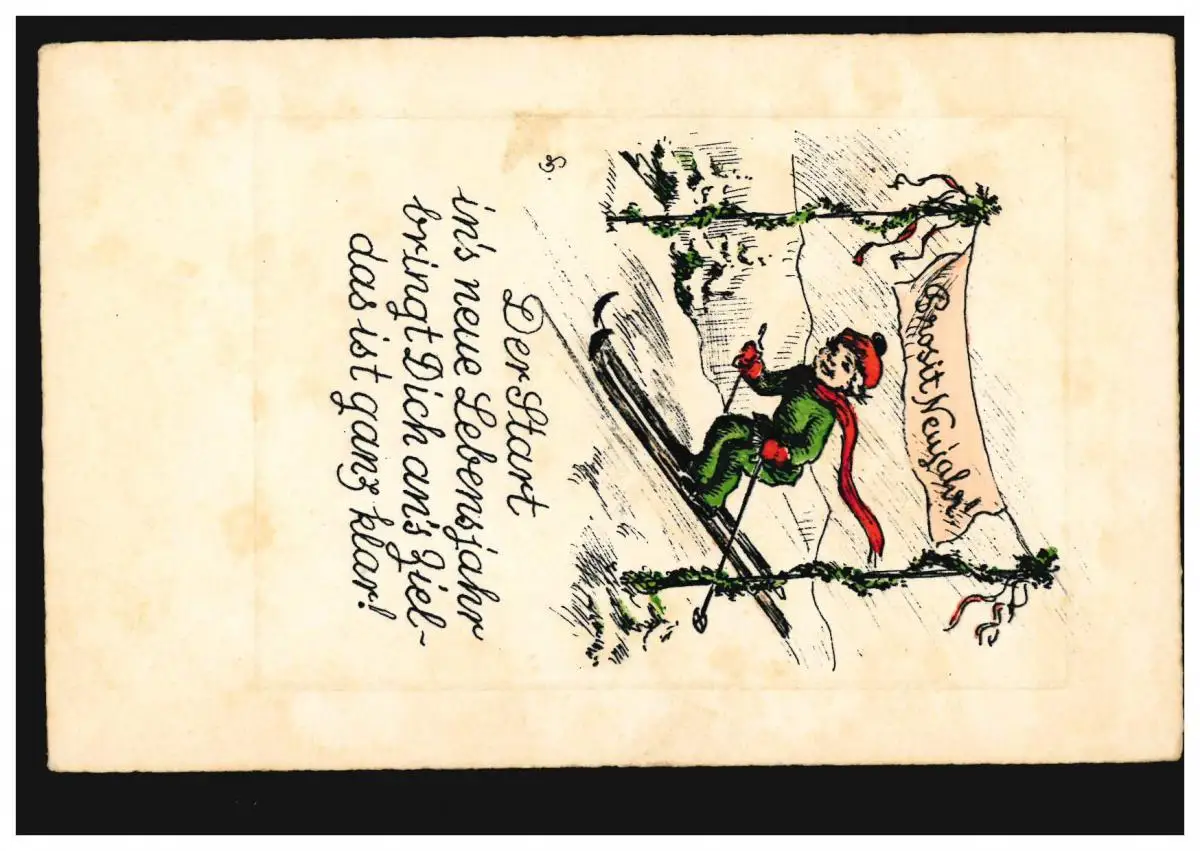 Prosit Neujahr!
Der Start
in's neue Lebensjahr
bringt Dich an's Ziel-
das ist ganz klar!